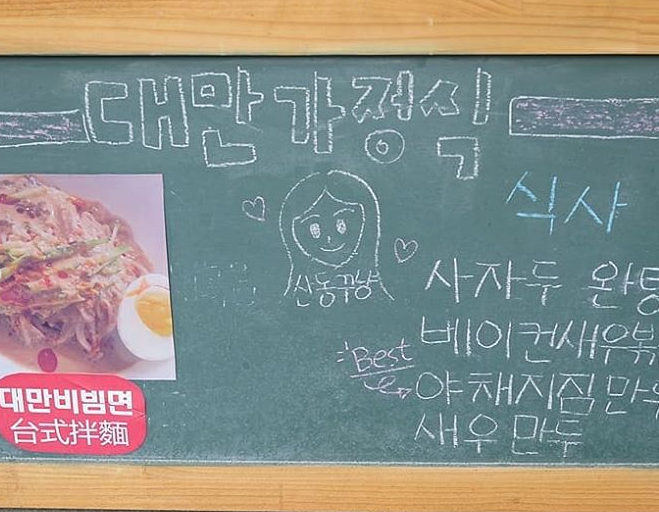 대만가정식
식사
산동꾸냥
사자두 완탕
베이컨새우볶
Best
야채지짐만두
새우만두
대만비빔면
台式拌麵